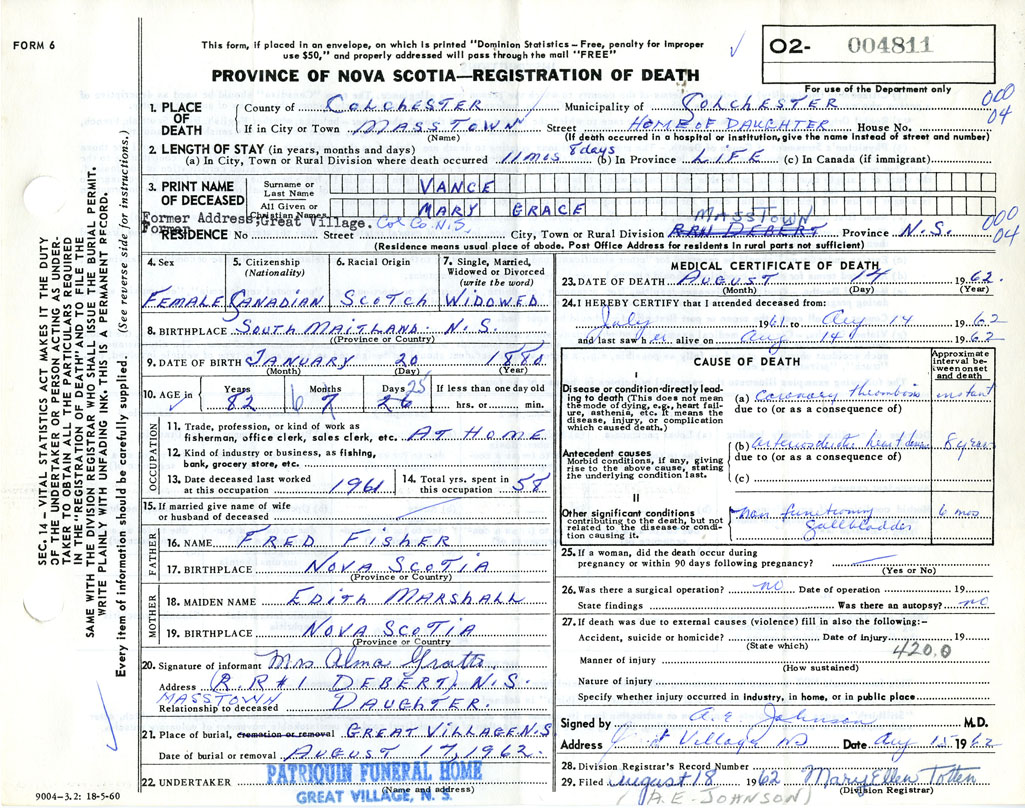 FORM 6
This form, if placed in an envelope, on which is printed "Dominion Statistics – Free, penalty for improper
use $50," and properly addressed will pass through the mail "FREE"
O2- 004811
For use of the Department only
PROVINCE OF NOVA SCOTIA—REGISTRATION OF DEATH
000
04
1. PLACE OF DEATH County of COLCHESTER Municipality of COLCHESTER
If in City or Town MASSTOWN (Name) Street HOME OF DAUGHTER House No.
(If death occurred in a hospital or institution, give the name instead of street and number)
2. LENGTH OF STAY (in years, months and days)
(a) In City, Town or Rural Division where death occurred 11 MOS 8 days (b) In Province LIFE (c) In Canada (if immigrant)
3. PRINT NAME OF DECEASED Surname or Last Name VANCE
All Given or Christian Names MARY GRACE
Former Address; Great Village. Col Co. N.S. MASSTOWN
Former RESIDENCE No Street City, Town or Rural Division RR#1 DEBERT Province N.S.
000
04
(Residence means usual place of abode. Post Office Address for residents in rural parts not sufficient)
4. Sex FEMALE
5. Citizenship (Nationality) CANADIAN
6. Racial Origin SCOTCH
7. Single, Married, Widowed or Divorced (write the word) WIDOWED
8. BIRTHPLACE SOUTH MAITLAND. N.S.
(Province or Country)
9. DATE OF BIRTH JANUARY 20 1880
(Month) (Day) (Year)
10. AGE in Years 82 Months 6 7 Days 25 26 If less than one day old
hrs. or min.
OCCUPATION
11. Trade, profession, or kind of work as
fisherman, office clerk, sales clerk, etc. AT HOME
12. Kind of industry or business, as fishing,
bank, grocery store, etc.
13. Date deceased last worked at this occupation 1961
14. Total yrs. spent in this occupation 58
15. If married give name of wife
or husband of deceased
FATHER
16. NAME FRED FISHER
17. BIRTHPLACE NOVA SCOTIA
(Province or Country)
MOTHER
18. MAIDEN NAME EDITH MARSHALL
19. BIRTHPLACE NOVA SCOTIA
(Province or Country)
20. Signature of informant Mrs Alma
Address (R.R#1 DEBERT) N.S.
MASSTOWN
Relationship to deceased DAUGHTER.
21. Place of burial, cremation or removal GREAT VILLAGE N.S
Date of burial or removal AUGUST 17, 1962.
22. UNDERTAKER PATRIQUIN FUNERAL HOME
(Name and address)
GREAT VILLAGE, N. S.
9004-3.2: 18-5-60
MEDICAL CERTIFICATE OF DEATH
23. DATE OF DEATH AUGUST 14 1962.
(Month) (Day) (Year)
24. I HEREBY CERTIFY that I attended deceased from:
July 1961 to Aug 14 1962
and last saw her alive on Aug 14 1962
CAUSE OF DEATH
Approximate interval between onset and death
I
Disease or condition directly leading to death (This does not mean the mode of dying, e.g., heart failure, asthenia, etc. It means the disease, injury, or complication which caused death.)
(a) Coronary thrombosis instant
due to (or as a consequence of)
Antecedent causes
Morbid conditions, if any, giving rise to the above cause, stating the underlying condition last.
(b) heart 8 years
due to (or as a consequence of)
(c)
II
Other significant conditions contributing to the death, but not related to the disease or condition causing it.
non functioning 6 mos
Gallbladder
25. If a woman, did the death occur during
pregnancy or within 90 days following pregnancy?
(Yes or No)
26. Was there a surgical operation? no Date of operation 19
State findings Was there an autopsy? no
27. If death was due to external causes (violence) fill in also the following:-
Accident, suicide or homicide? Date of injury 19
(State which) 420.0
Manner of injury
(How sustained)
Nature of injury
Specify whether injury occurred in industry, in home, or in public place
Signed by A. E. Johnson M.D.
Address Village NS Date Aug 15 1962
28. Division Registrar's Record Number
29. Filed August 18 1962 Mary Ellen Totten
(Division Registrar)
(A.E-JOHNSON)
SEC. 14 – VITAL STATISTICS ACT MAKES IT THE DUTY
OF THE UNDERTAKER OR PERSON ACTING AS UNDER-
TAKER TO OBTAIN ALL THE PARTICULARS REQUIRED
IN THE "REGISTRATION OF DEATH" AND TO FILE THE
SAME WITH THE DIVISION REGISTRAR WHO SHALL ISSUE THE BURIAL PERMIT.
WRITE PLAINLY WITH UNFADING INK. THIS IS A PERMANENT RECORD.
Every item of information should be carefully supplied. (See reverse side for instructions.)